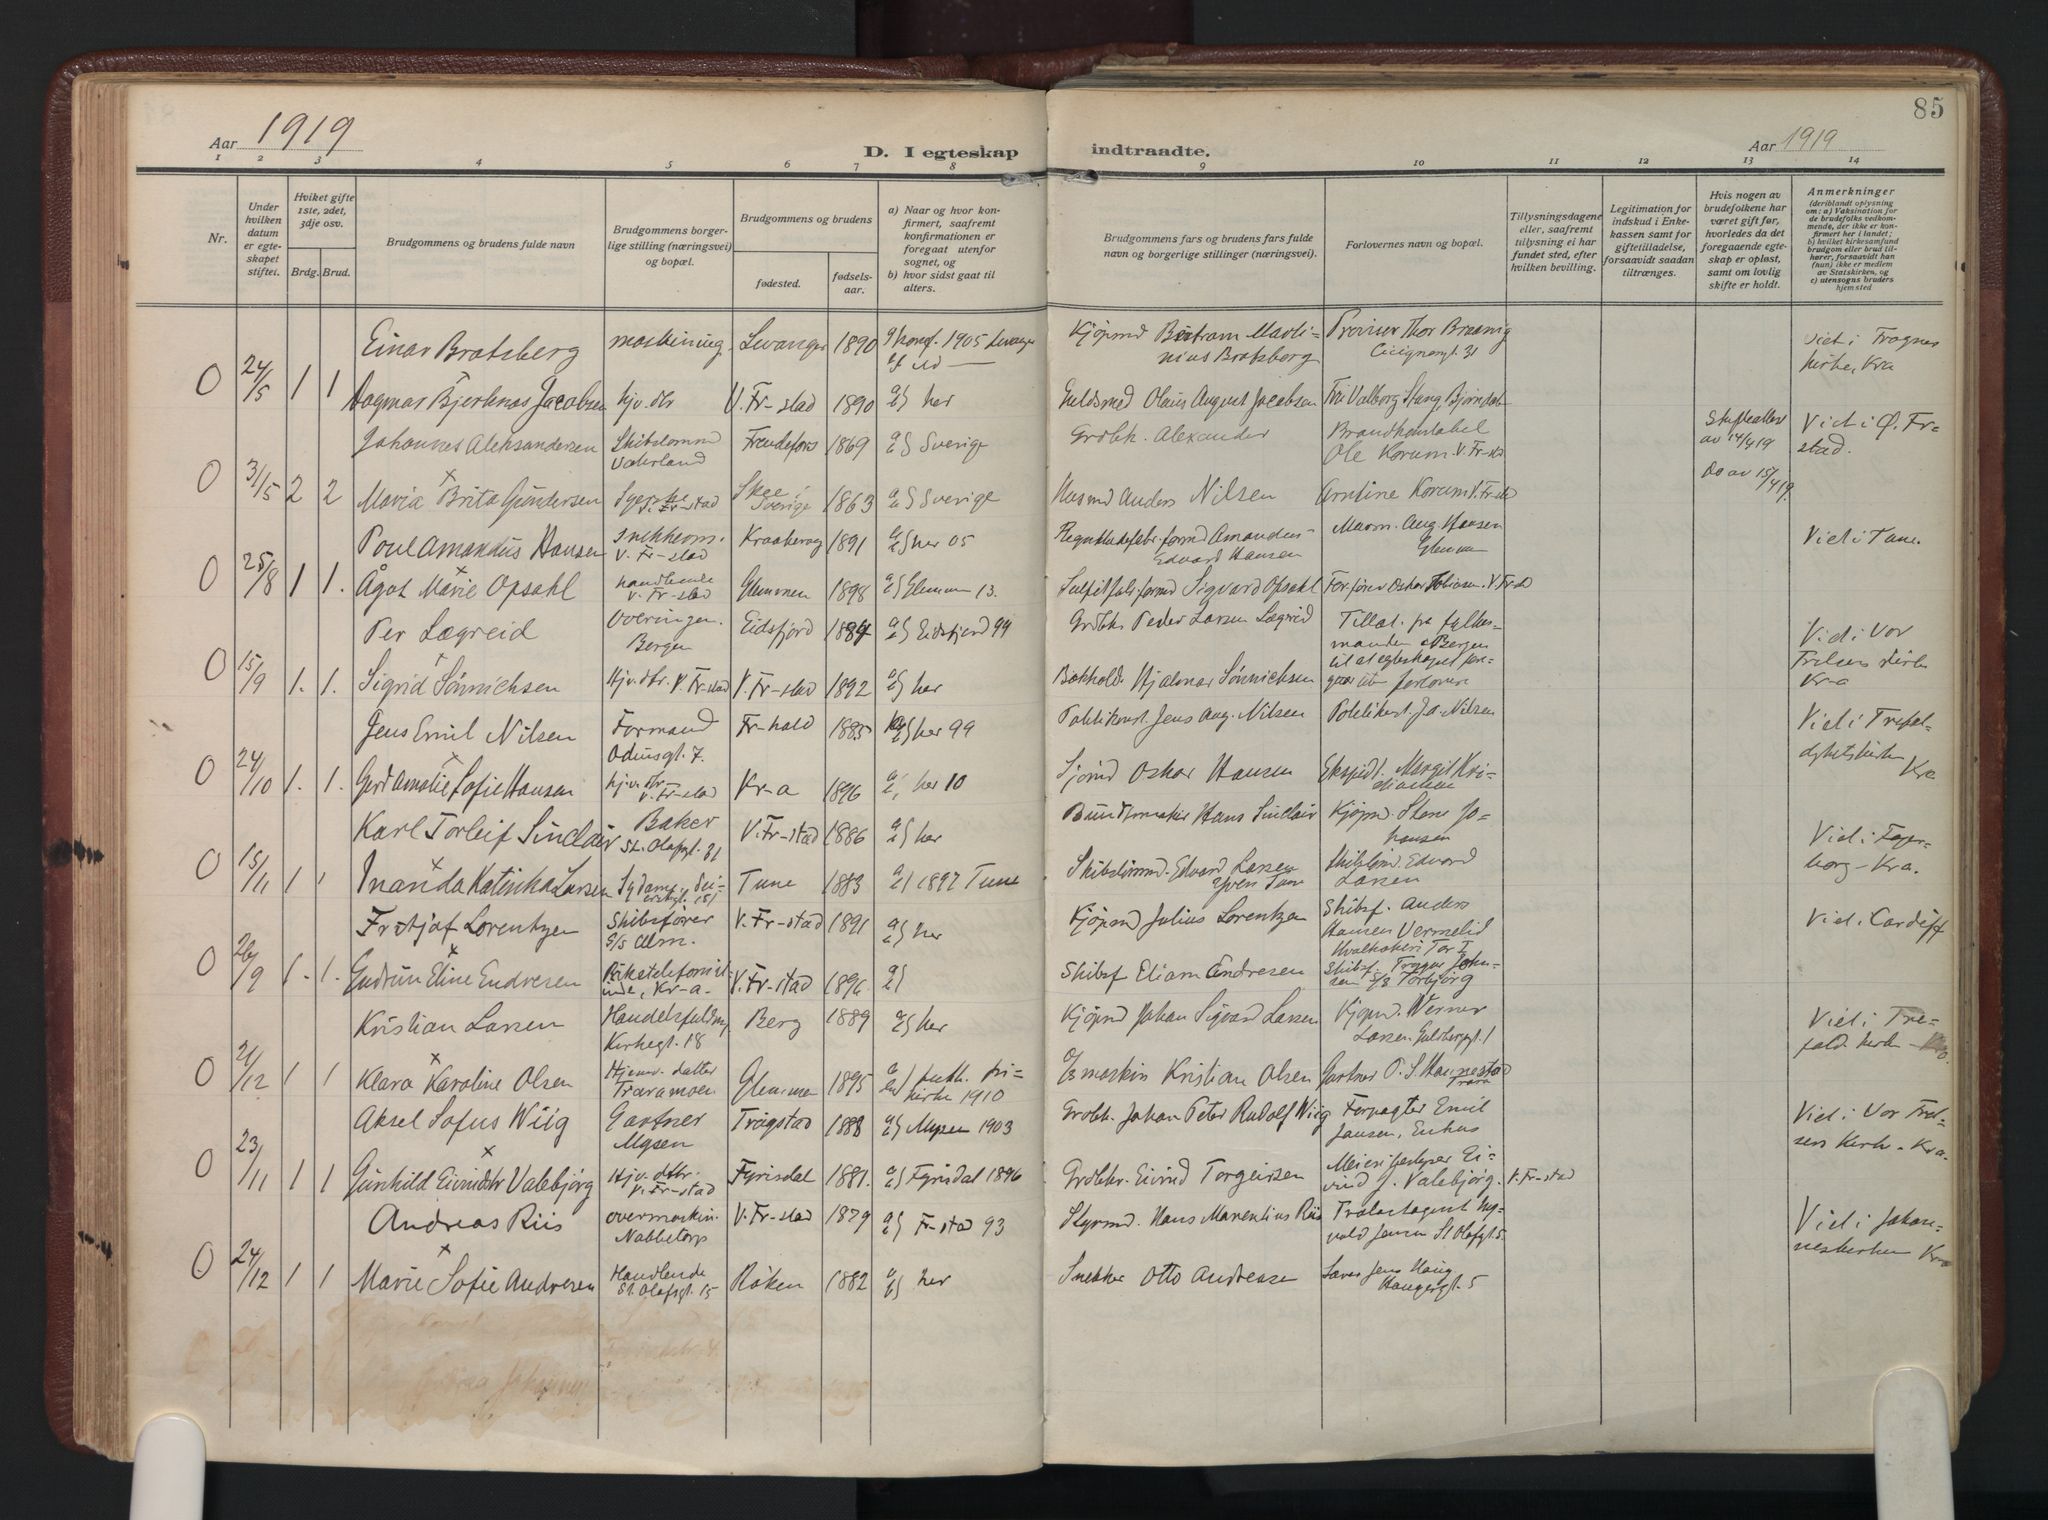 85
Aar 1919
D. I egteskap indtraadte.
Aar 1919
1 2 3 4 5 6 7 8 9 10 11 12 13 14
Nr.
Under hvilken datum er egteskapet stiftet.
Hviket gifte 1ste, 2det, 3dje osv.
Brdg. Brud.
Brudgommens og brudens fulde navn
Brudgommens borgerlige stilling (næringsvei) og bopæl.
Brudgommens og brudens
fødested.
fødselsaar.
a) Naar og hvor konfirmert, saafremt konfirmationen er foregaat utenfor sognet, og
b) hvor sidst gaat til alters.
Brudgommens fars og brudens fars fulde navn og borgerlige stillinger (næringsvei).
Forlovernes navn og bopæl.
Tillysningsdagene eller, saafremt tillysning ei har fundet sted, efter hvilken bevilling.
Legitimation for indskud i Enkekassen samt for giftetilladelse, forsaavidt saadan tiltrænges.
Hvis nogen av brudefolkene har været gift før, hvorledes da det foregaaende egteskap er opløst, samt om lovlig skifte er holdt.
Anmerkninger
(deriblandt oplysning om: a) Vaksination for de brudefolks vedkommende, der ikke er konfirmert her i landet; b) hvilket kirkesamfund brudgom eller brud tilhører, forsaavidt han (hun) ikke er medlem av Statskirken, og c) utensogns bruders hjemsted
Einar Bratsberg maskining. Levanger 1890 Kjøpmd Martinius Bratsberg Provisor Thor Cicignongt. 31 Viet i Frogner kirke, Kra
0 24/5 1 1 Dagmar Bjerknæs Jacobsen hjv. dtr V. Fr-stad 1890 a/b) her Guldsmed Olaus August Jacobsen Frk Valborg Stang
Johannes Aleksandersen Skibstømm 1869 a/b) Sverige Grdbk. Alexander Brandkonstabel Ole Korum V. Fr-stad Skifteattest av 14/4 19 Viet i Ø. Frstad.
0 31/5 2 2 Maria Brita Gundersen Syerske V. Fr-stad Skee Sverige 1863 a/b) Sverige Husmd Anders Nilsen Arntine Korum V. Fr-st Do av 15/4 19.
Poul Amandus Hansen snekkerm. V. Fr-stad Kraakerøy 1891 a/b) her 05 Amandus Edvard Hansen Murm. Aug. Hansen Glemmen Viet i Tune.
0 25/8 1 1. Ågot Marie Opsahl handlende V. Fr-stad Glemmen 1898 a/b) Glemmen 13. Sulfitfab. formd Sigvard Opsahl Forfører Oskar Tobiasen. V. Fr-st
Per Lægreid overingen. Bergen Eidsfjord 1884 a/b) Eidsfjord 99 Grdbk Peder Larsen Lægreid Tillat. fra fylkesmanden i Bergen til at egteskapet foregaar uten forlovere Viet i Vor Frelsers kirke Kr-a
0 15/9 1. 1. Sigrid Sønnichsen Hjv. dtr. V. Fr-stad V. Fr-stad 1892 a/b) her Bokhold. Hjalmar Sønnichsen
Jens Emil Nilsen Formand Odinsgt. 7. Fr-hald 1885 a/b) her 99 Politikonst. Jens Aug. Nilsen Politikonst. Ja. Nilsen Viet i Trefoldighetskirken Kra
0 24/10 1. 1. Gerd Amalie Sofie Hansen hj. v. dtr. V. Fr-stad Kr-a 1896 her 10 Sjømd Oskar Hansen Ekspedt. Margit Kristiansen
Karl Torleif Sinclair Baker St. Olafsgt. 31 V. Fr-stad 1886 a/b) her Buntmaker Hans Sinclair Kjøpm. Stene Johansen Viet i Fagerborg - Kra.
0 15/11 1 1 Inanda Katinka Larsen Sydame Tune 1883 a/b) 1897 Tune Skibstømmd. Edvard Larsen Skibstømmd. Edvard Larsen
Fritjof Lorentzen Skibsfører S/S Alm. V. Fr-stad 1891 a/b) her Kjøpmd Julius Lorentzen Skibsf. Anders Hansen Vermelid Hvalkokeri Tor I Viet i Cardiff
0 26/9 1. 1. Gudrun Eline Endresen Rikstelefonistinde, Kr-a. V. Fr-stad 1896 a/b) Skibsf Eliam Endresen Skibsf. Trygve Johnsen S/S Torbjørg
Kristian Larsen Handelsfuldm. Kirkegt. 18 Berg 1889 a/b) her Kjøpmd Johan Sigvard Larsen Kjøpmd. Werner Larsen Guldbergsgt. 1 Viet i Trefold. kirke - Kra.
0 21/12 1 1 Klara Karoline Olsen Hjemv. datter Traramoen. Glemmen 1895 luth. frikirke 1910 maskin Kristian Olsen Gartner O. S. Haunestad Trara
Aksel Sofus Wiig Gartner Mysen Trøgstad 1888 a/b) Mysen 1903 Grdbk. Johan Peter Rudolf Wiig Forpagter Emil Jansen, Enhus Viet i Vor Frelsers Kirke - Kra.
0 23/11 1 1 Gunhild Eivindsdtr Valebjørg Hjv. dtr. V. Fr-stad Fyrisdal 1881. a/b) Fyrisdal 1896 Grdbkr. Eivind Torgeirsen Meieribestyrer Eivind J. Valebjørg. V. Fr-stad
Andreas Riis overmaskin. Nabbetorp V. Fr-stad 1879 a/b) Fr-stad 93 Styrmd. Hans Marentius Riis Trælastagent Nyvold Jensen St. Olafsgt 5. Viet i Johanneskirken Kra
0 24/12 1 1 Marie Sofie Andresen Handlende St. Olafsgt. 15 Røken 1882 a/b) her Snekker Otto Andresen Jens Haug 5